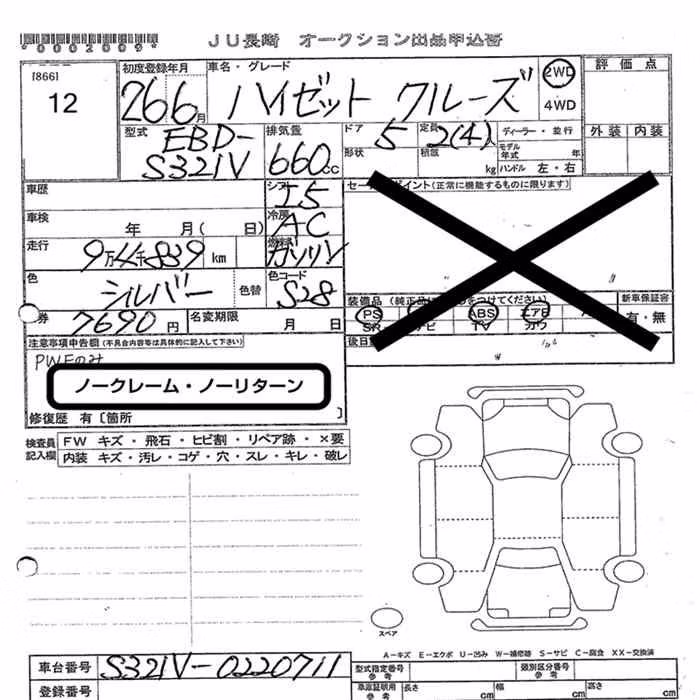 *0002009*
JU長崎 オークション出品申込書
[866]
12
初度登録年月
26 6月
車名・グレード
ハイゼット クルーズ
2WD
4WD
評価点
外装 内装
型式
EBD-
S321V
排気量
660cc
ドア 5
定員 2(4)人
ディーラー・並行
形状
積載 kg
モデル年式 年
ハンドル 左・右
車歴
シフト I5
セールスポイント(正常に機能するものに限ります)
車検 年 月( 日)
冷房 AC
走行 9万4千839 km
燃料 ガソリン
色 シルバー
色替
色コード S28
装備品(純正品に をつけてください)
新車保証書
有・無
PS ABS エアB
SR ナビ TV カワ
券 7690円
名変期限 月 日
後日
注意事項申告欄(不具合内容等は具体的に記入して下さい)
PW左のみ
ノークレーム・ノーリターン
修復歴 有〔箇所 〕
検査員記入欄
FW キズ・飛石・ヒビ割・リペア跡・×要
内装 キズ・汚レ・コゲ・穴・スレ・キレ・破レ
スペア
A-キズ E-エクボ U-凹み W-補修跡 S-サビ C-腐食 XX-交換済
車台番号 S321V-0220711
型式指定番号 類別区分番号
登録番号
車庫証明用参考 長さ cm 幅 cm 高さ cm